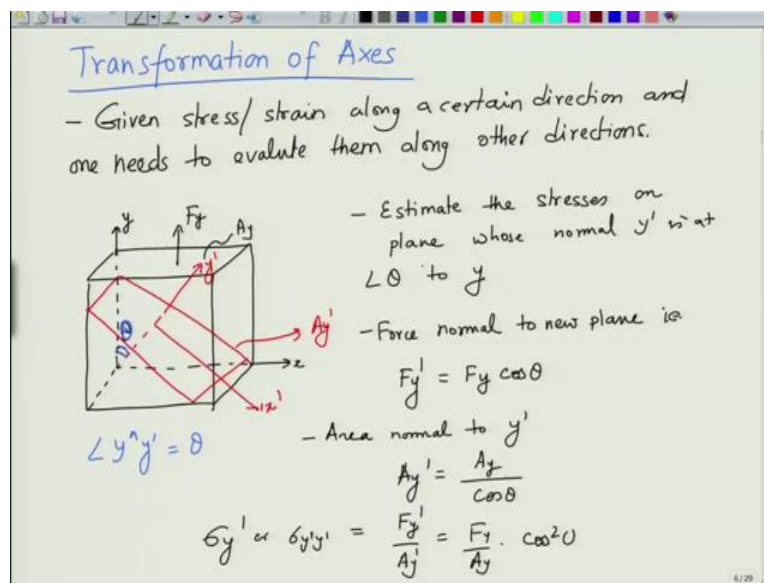 Transformation of Axes
- Given stress/ strain along a certain direction and
one needs to evalute them along other directions.
y
Fy
Ay
y'
Ay'
x
x'
O
θ
∠ y^y' = θ
- Estimate the stresses on
plane whose normal y' is at
∠θ to y
- Force normal to new plane ie
Fy' = Fy cosθ
- Area normal to y'
Ay' = Ay / cosθ
σy' or σy'y' = Fy' / Ay' = Fy / Ay . cos²θ
6/29